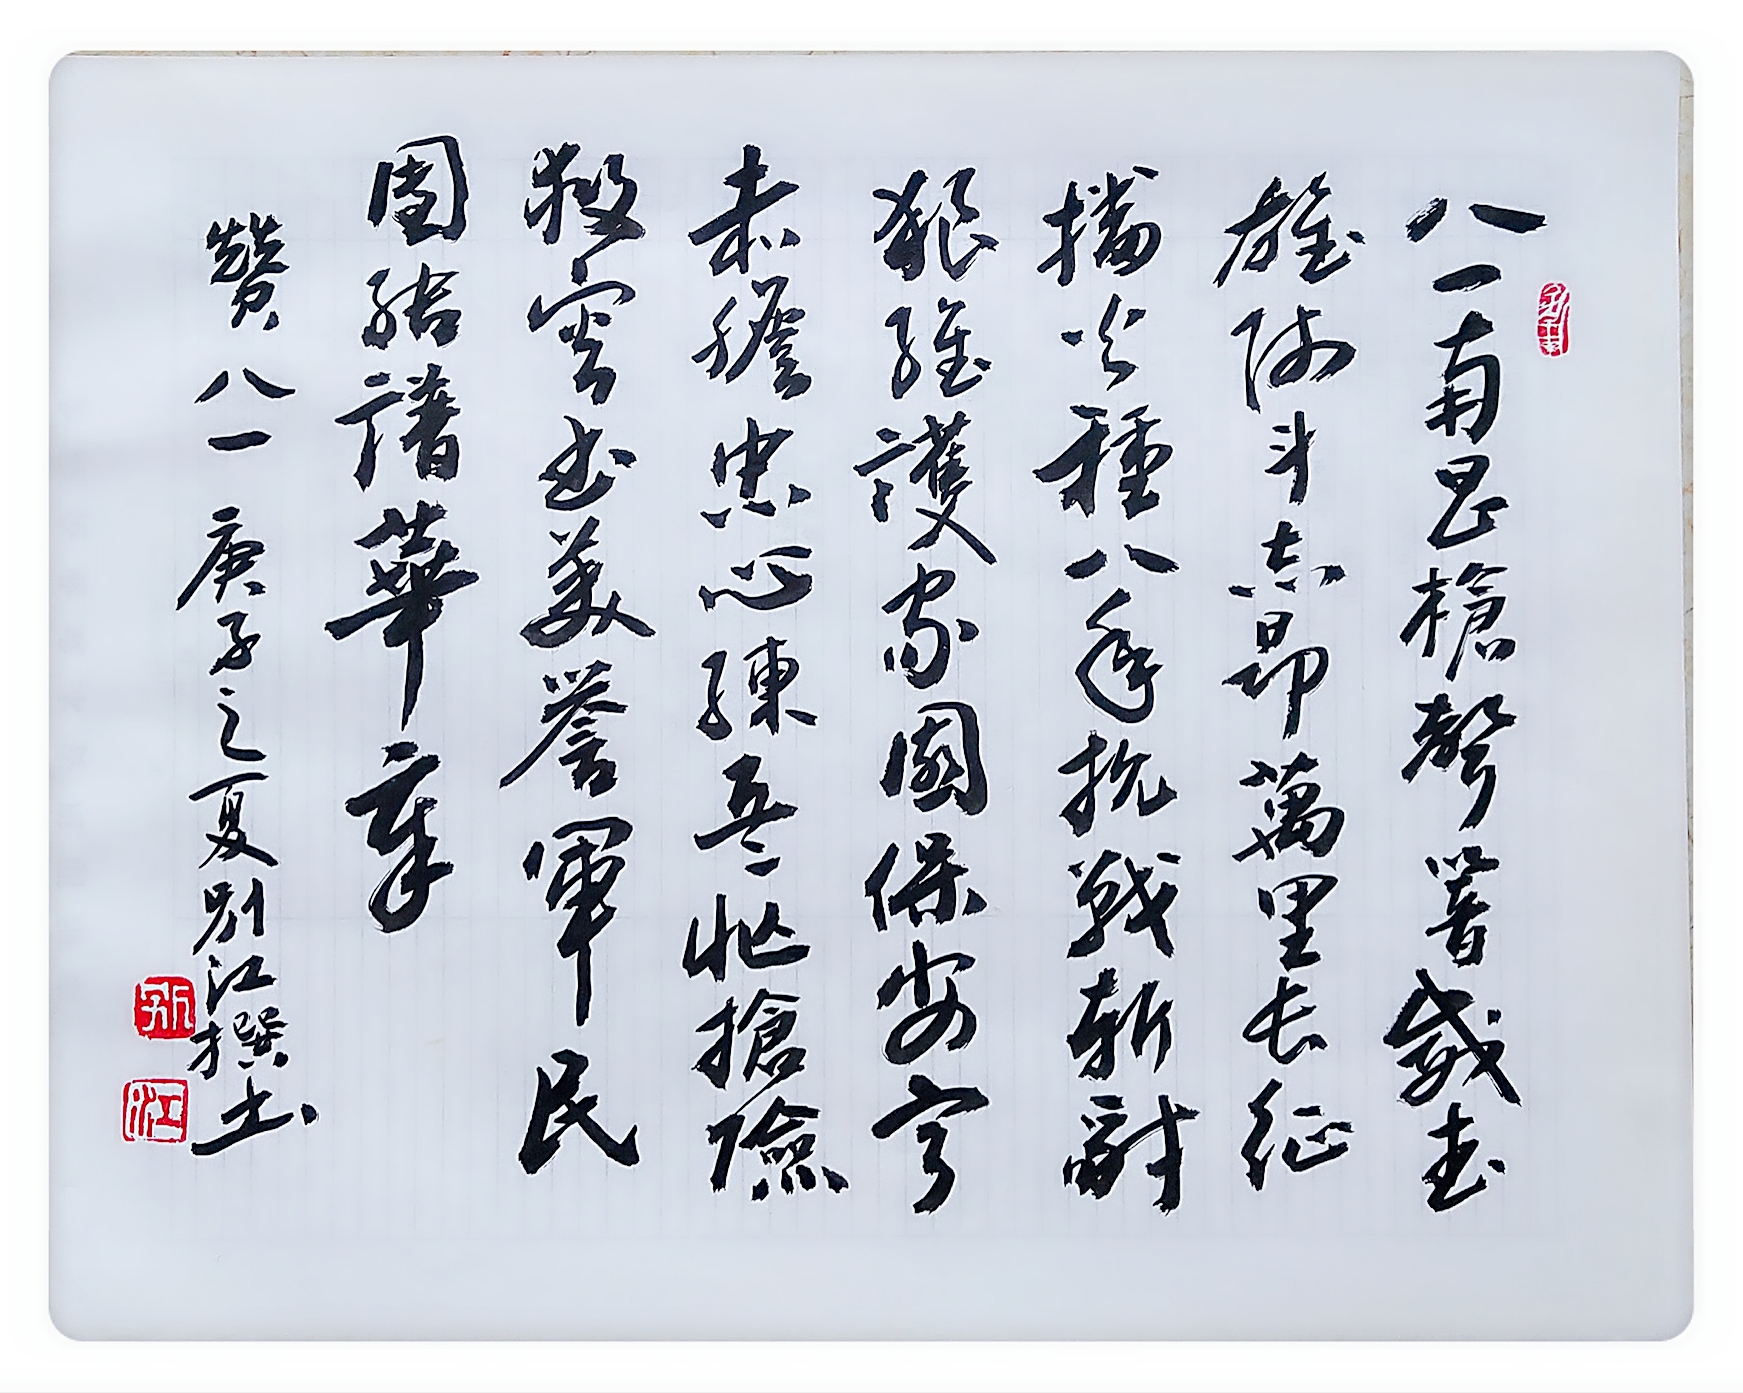 八一南昌槍聲響威武
雄师斗志昂萬里长征
播火種八年抗戰斬豺
狼維護家國保安寧
赤膽忠心練兵忙搶險
救災书美譽軍民
團結譜華章
贊八一 庚子之夏别江撰书
别
江